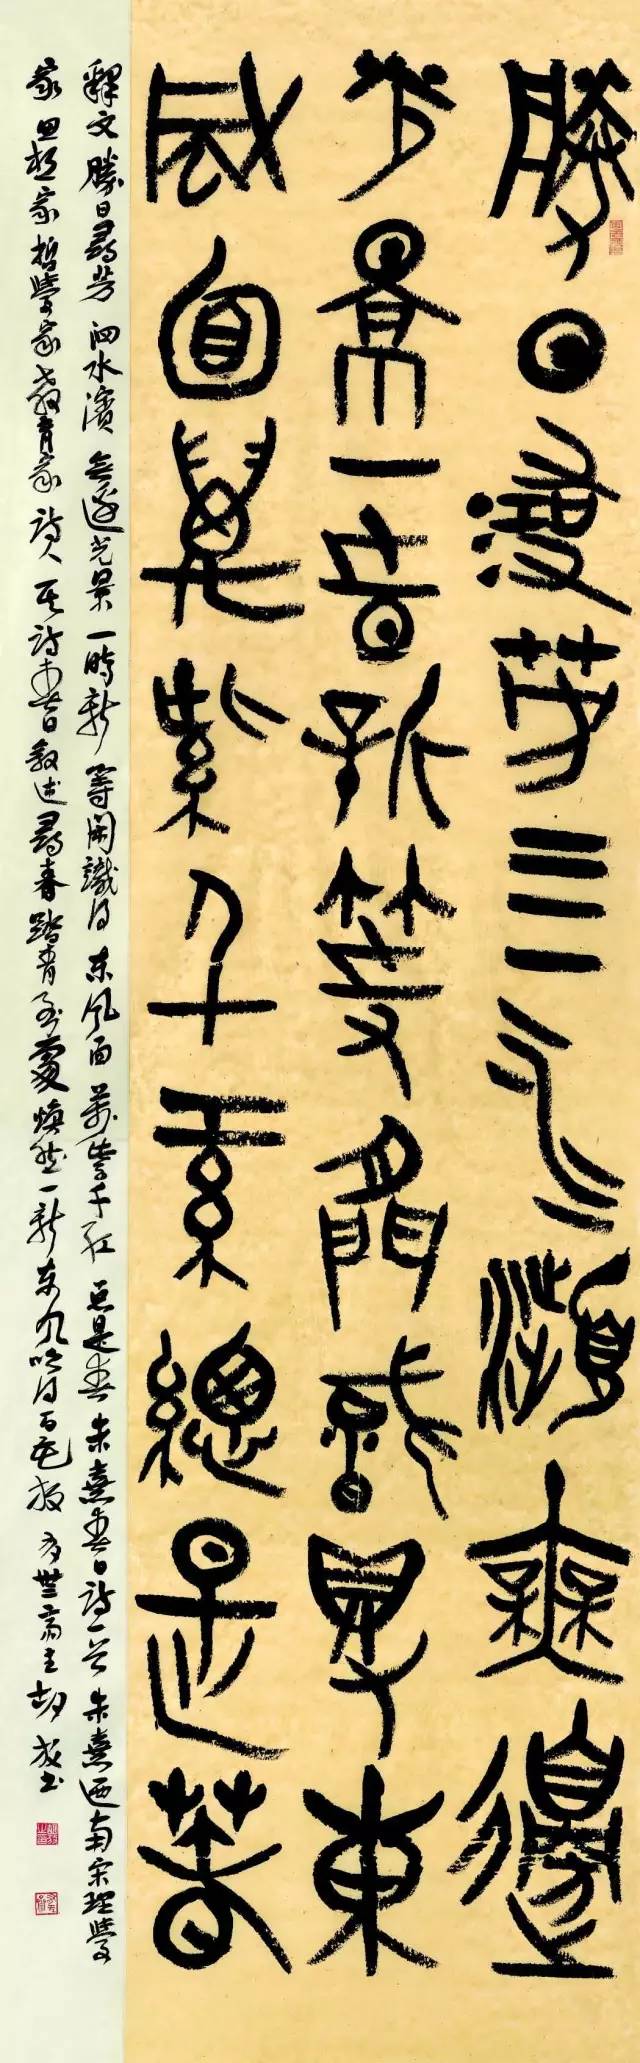 勝日尋芳泗水濱無邊
光景一時新等閒識得東
風面萬紫千紅總是春
釋文 勝日尋芳 泗水濱 無邊光景 一時新 等閑識得 東風面 萬紫千紅 總是春 朱熹春日詩一首 朱熹迺南宋理學
家思想家哲學家教育家詩人 其詩春日敘述尋春踏青至處煥然一新 東風吹得百花放 齋主胡書